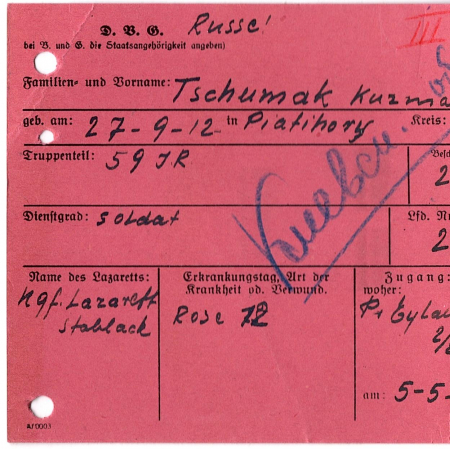 D. B. G. Russe!
III
bei B. und G. die Staatsangehörigkeit angeben)
Familien- und Vorname: Tschumak Kuzma
geb. am: 27-9-12 in Piatihory Kreis:
Truppenteil: 59 JR
Besch
2
Dienstgrad: Soldat
Lfd. Nr
2
Name des Lazaretts:
Kgf. Lazarett
Stablack
Erkrankungstag, Art der
Krankheit od. Verwund.
Rose
Zugang:
woher:
Pr Eylau
2/
am: 5-5-
A/0003